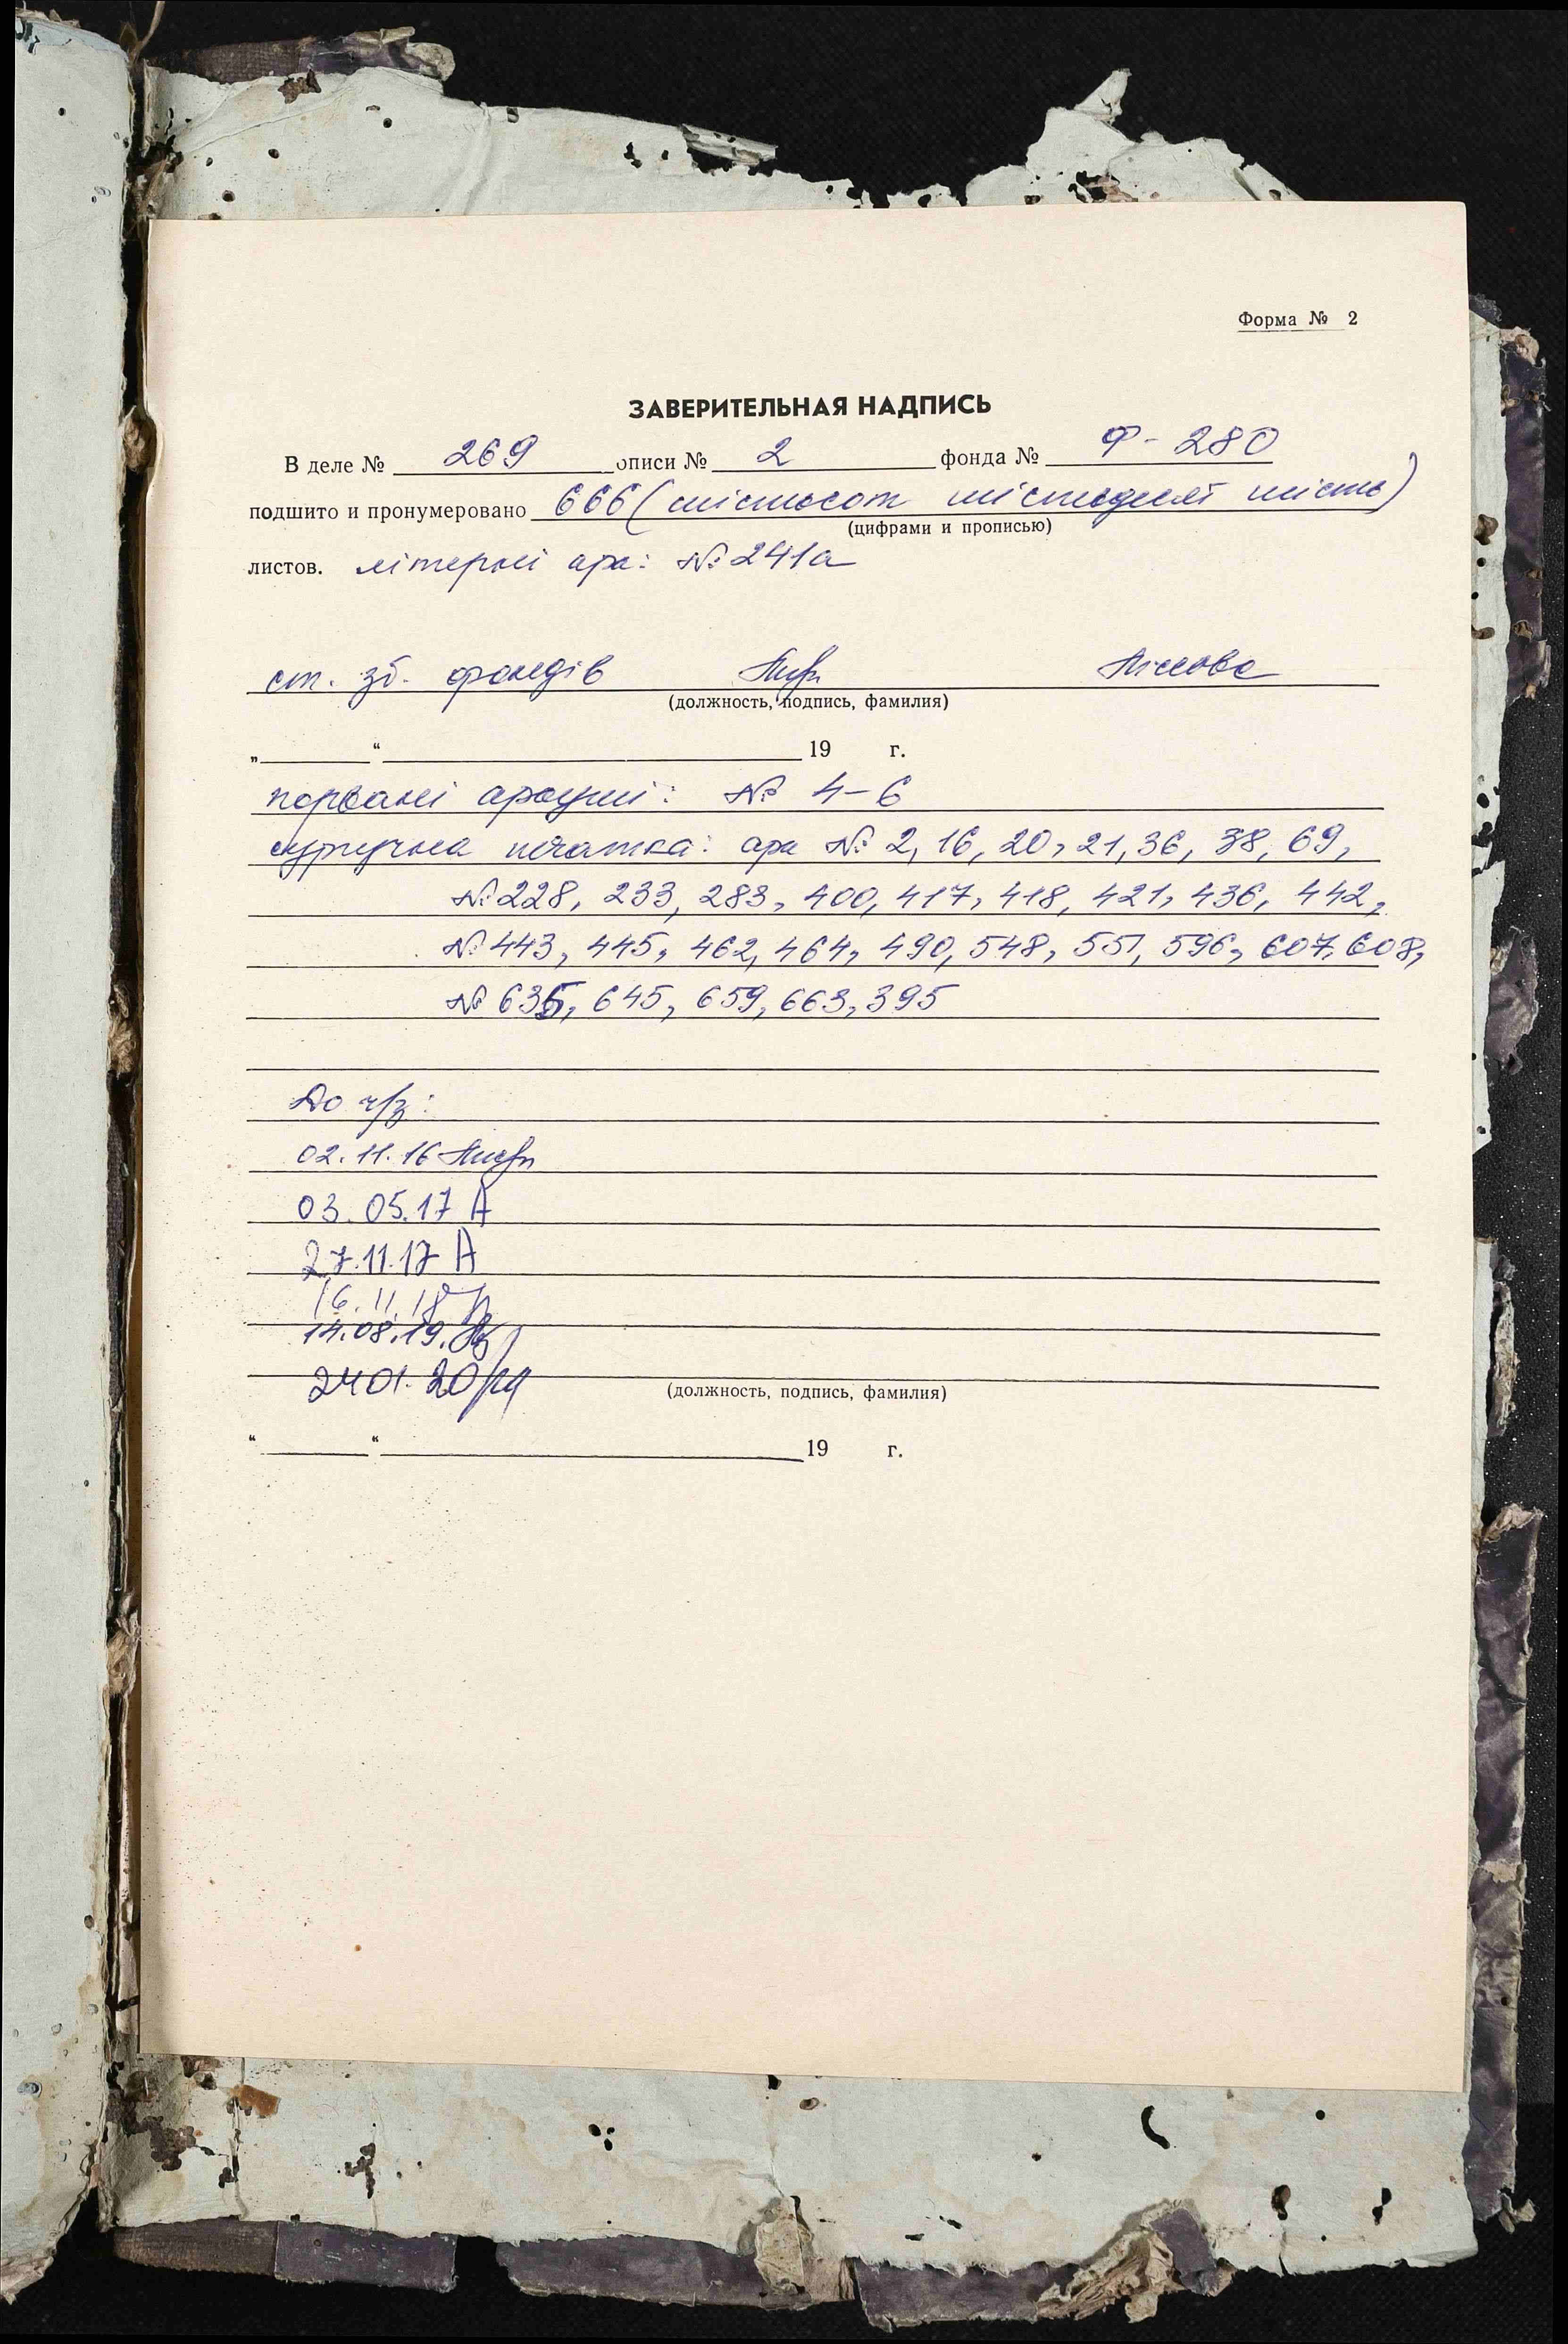 Форма № 2
ЗАВЕРИТЕЛЬНАЯ НАДПИСЬ
В деле № 269 описи № 2 фонда № Ф-280
подшито и пронумеровано 666 (шістьсот шістьдесят шість)
(цифрами и прописью)
листов. літерні арк: № 241а
ст. зб. фондів
(должность, подпись, фамилия)
„ “ 19 г.
порвані аркуші: № 4-6
сургучна печатка: арк № 2, 16, 20, 21, 36, 38, 69,
№ 228, 233, 283, 400, 417, 418, 421, 436, 442,
№ 443, 445, 462, 464, 490, 548, 551, 596, 607, 608,
№ 635, 645, 659, 663, 395
До ч/з:
02.11.16
03.05.17 А
27.11.17 А
16.11.18
14.08.19.
24 01. 20
(должность, подпись, фамилия)
“ “ 19 г.